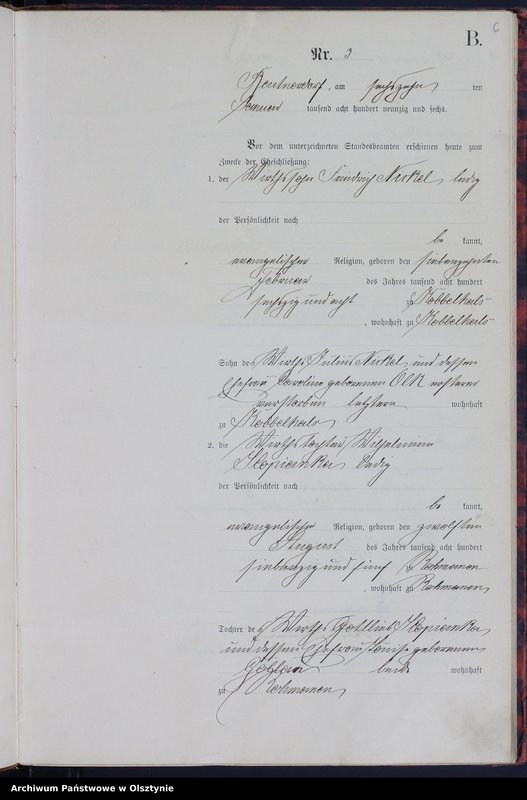 6
B.
Nr. 3
Rentnerdorf, am sechszehn ten
Januar tausend acht hundert neunzig und sechs.
Vor dem unterzeichneten Standesbeamten erschienen heute zum
Zwecke der Eheschließung:
1. der Wirthssohn Friedrich Nickel, ledig
der Persönlichkeit nach
be kannt,
evangelischer Religion, geboren den siebenzehnten
Februar des Jahres tausend acht hundert
sechszig und acht zu Kobbelhals
, wohnhaft zu Kobbelhals
Sohn des Wirths Julius Nickel, und dessen
Ehefrau Caroline geborenen Olk ersterer
verstorben letztere wohnhaft
zu Kobbelhals
2. die Wirthstochter Wilhelmine
Slopianka, ledig
der Persönlichkeit nach
be kannt,
evangelischer Religion, geboren den zwölften
August des Jahres tausend acht hundert
siebenzig und fünf zu Rohmanen
, wohnhaft zu Rohmanen
Tochter des Wirths Gottlieb Slopianka
und dessen Ehefrau Louise geborenen
beide wohnhaft
zu Rohmanen
Archiwum Państwowe w Olsztynie